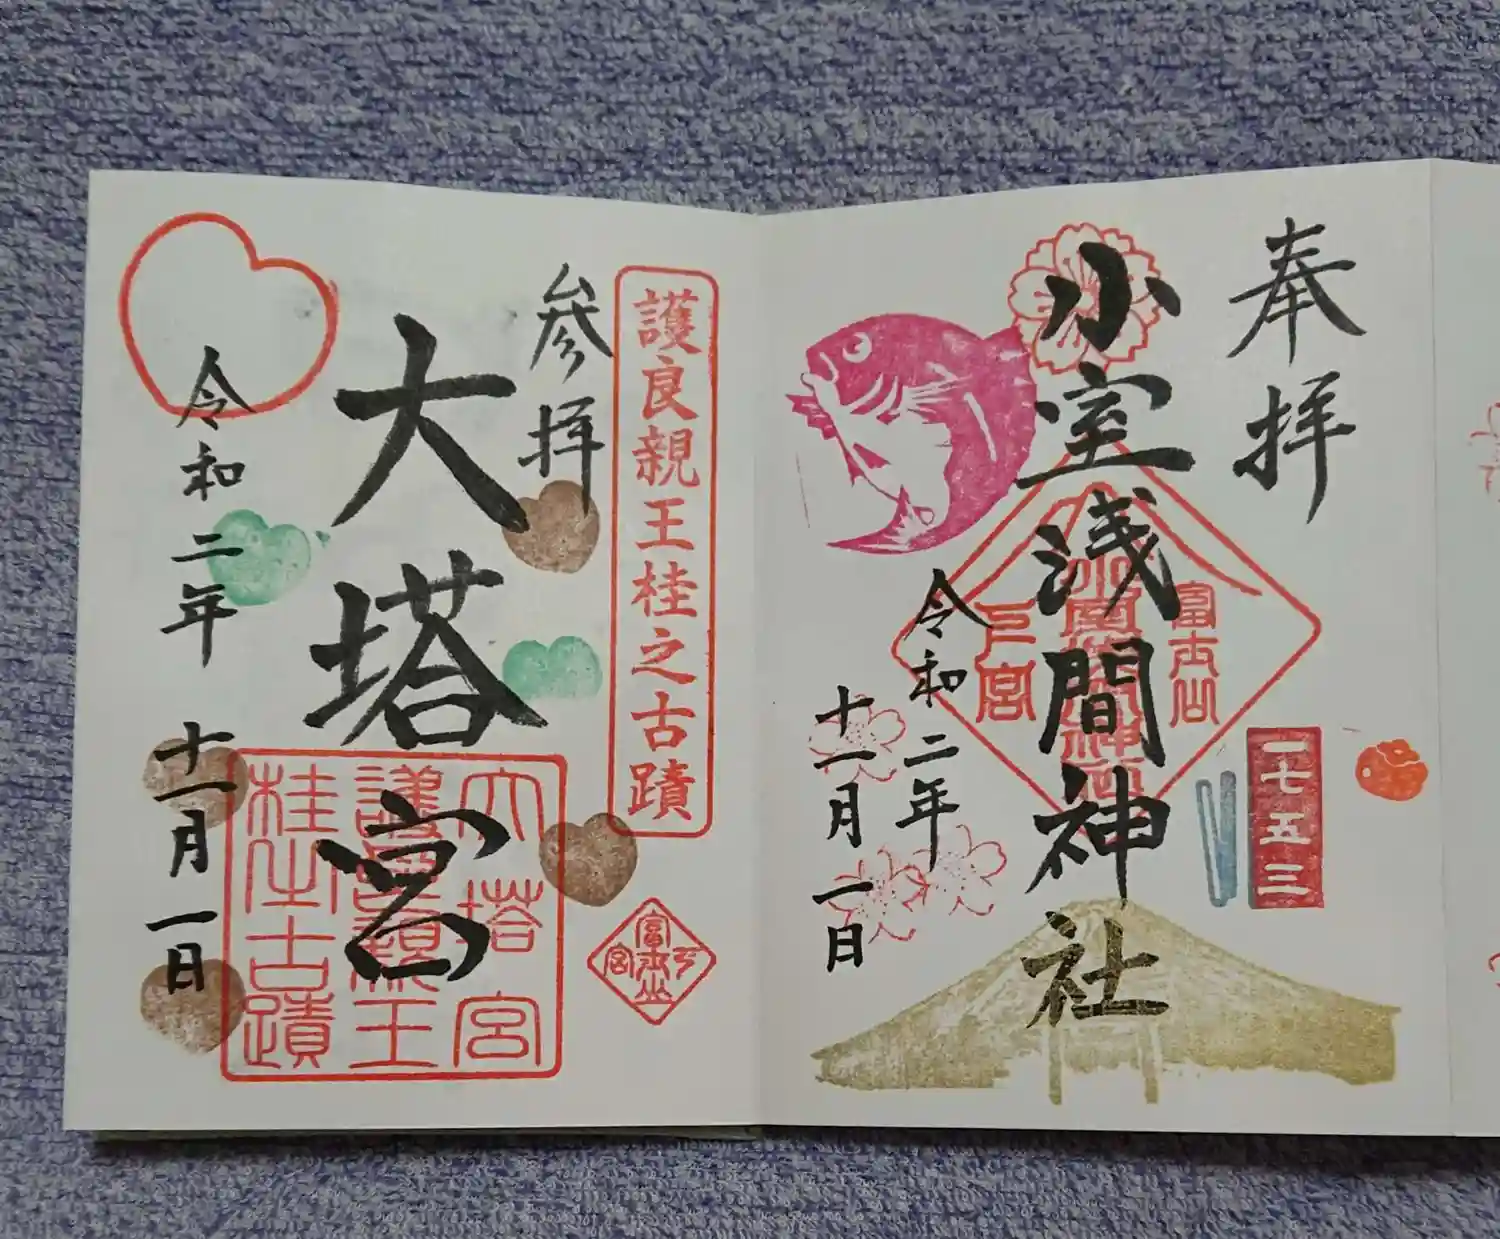 奉拝
小室浅間神社
富士山
下宮
小室浅間神社
一七五三
令和二年
十一月一日
護良親王桂之古蹟
参拝
大塔宮
大塔宮
護良親王
桂古蹟
富士山
下宮
令和二年
十一月一日